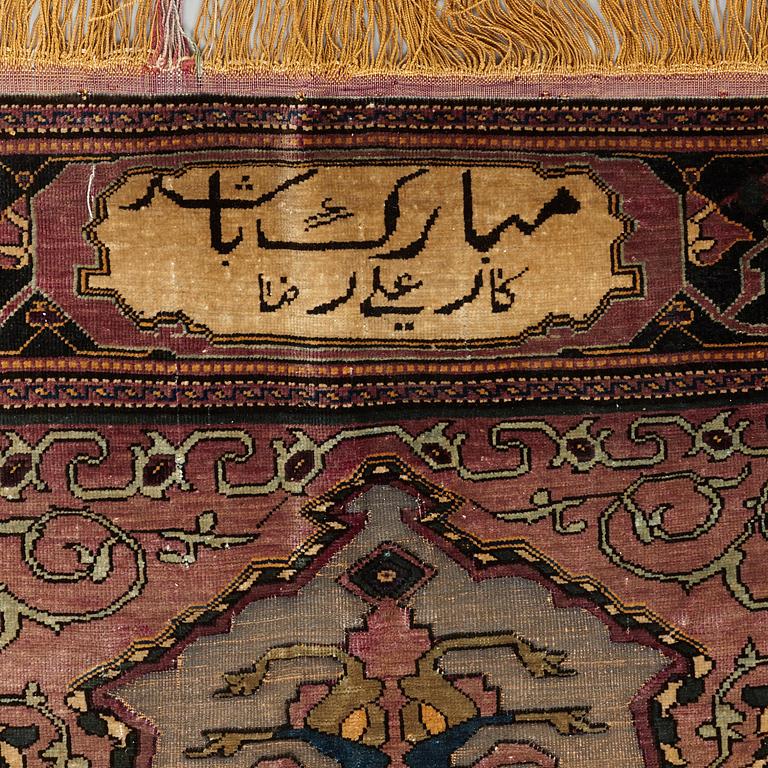 مبارک باشد
کار علی رضا